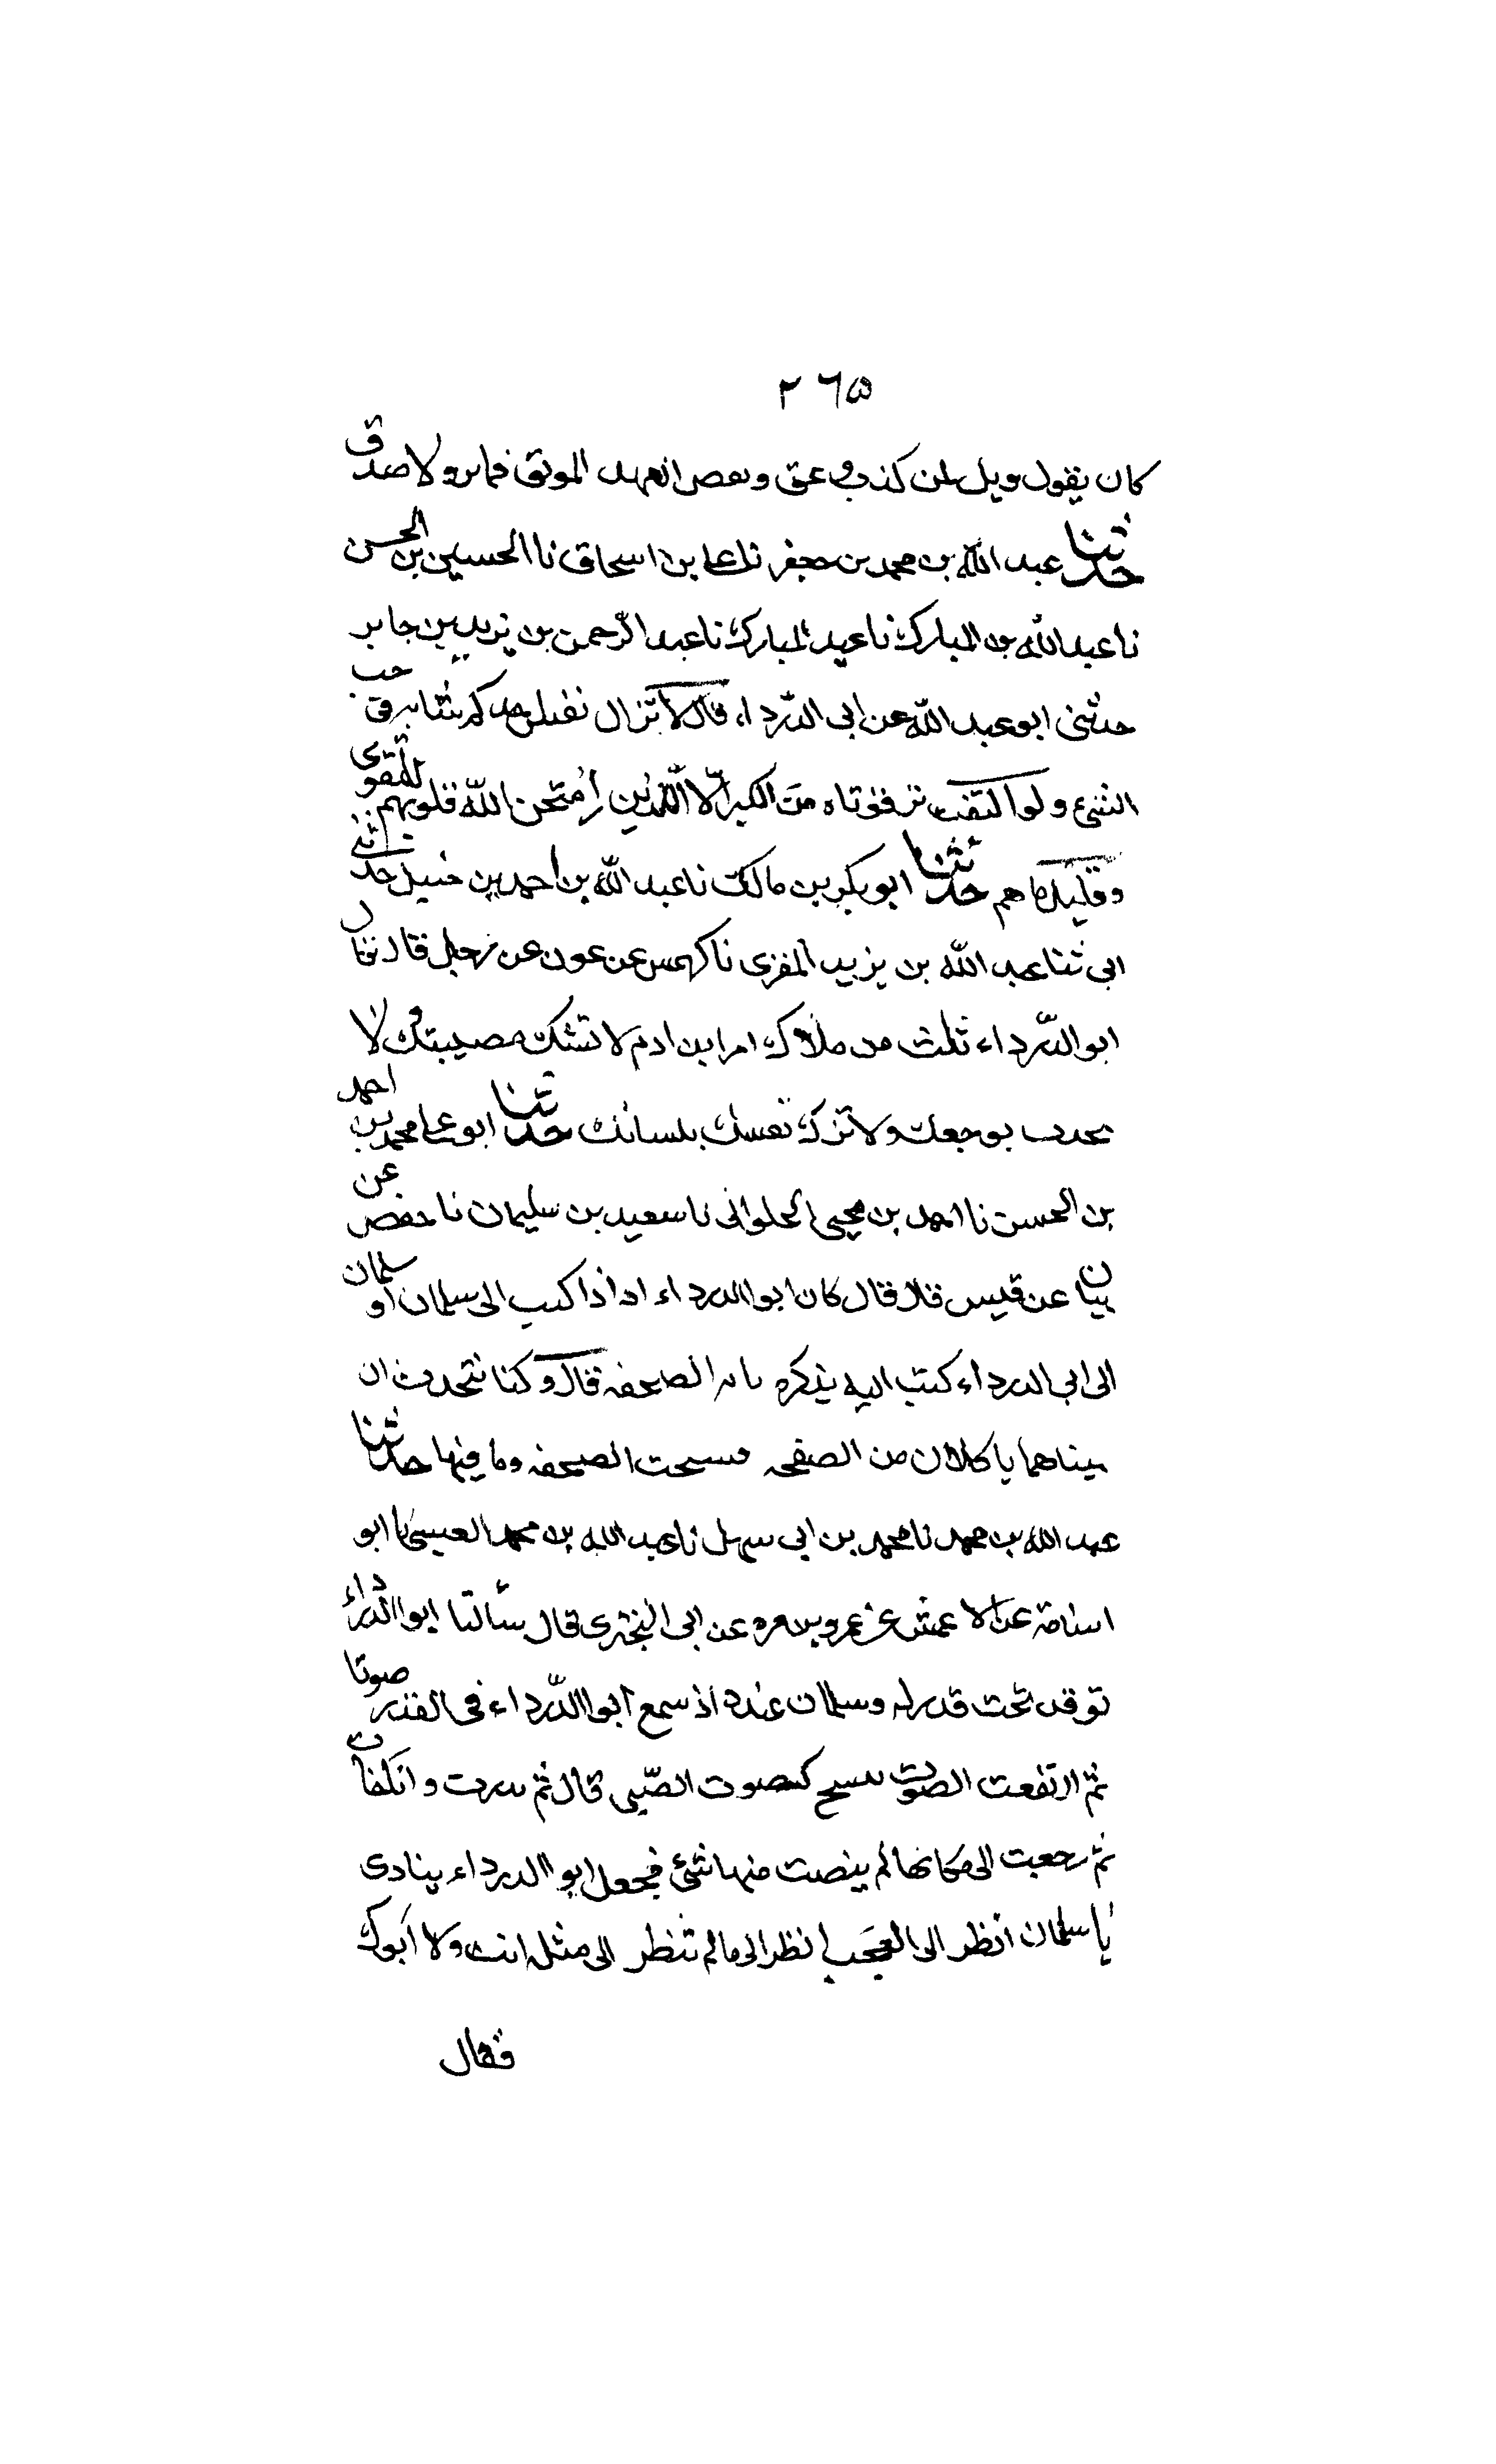 ٢٦٥
كان يقول ويل لمن كذب وعق ونقص العهد الموثق فما بر ولا صدق
حدثنا عبد الله بن محمد بن جعفر نا على بن اسحاق نا الحسين بن الحسن
نا عبد الله بن المبارك نا عبد المبارك نا عبد الرحمن بن يزيد بن جابر
حدثنى ابو عبد الله عن ابى الدرداء قال لا تزال نفس احدكم شابة فى حب
الشئ ولو التقت ترقوتاه من الكبر الا الذين امتحن الله قلوبهم للتقوى
وقليل ما هم حدثنا ابو بكر بن مالك نا عبد الله بن احمد بن حنبل حدثنى
ابى ثنا عبد الله بن يزيد المقرى نا كهمس عن عون عن رجل قال قال
ابو الدرداء ثلث من ملاك امر ابن ادم لا تشك مصيبتك ولا
تحدث بوجعك ولا تزك نفسك بلسانك حدثنا ابو على محمد بن احمد
بن الحسن نا احمد بن يحيى الحلوانى نا سعيد بن سليمان نا حفص عن
بيان عن قيس قال قال كان ابو الدرداء اذا كتب الى سلمان او سلمان
الى ابى الدرداء كتب اليه يذكره بايه الصحفه قال وكنا نتحدث ان
بيناهما ياكلان من الصفحه فسبحت الصحفه وما فيها حدثنا
عبد الله بن محمد نا محمد بن ابى سهل نا عبد الله بن محمد العبسى نا ابو
اسامة عن الاعمش عن عمرو بن مره عن ابى البخترى قال بينا ابو الدرداء
توقد تحت قدر له وسلمان عنده اذ سمع ابو الدرداء فى القدر صوتا
ثم ارتفعت الصوت تسبح كصوت الصبى قال ثم ندرت وانكفات
ثم رجعت الى مكانها لم ينصت منها شئ فجعل ابو الدرداء ينادى
يا سلمان انظر الى العجب انظر الى ما لم تنظر الى مثله انت ولا ابوك
فقال